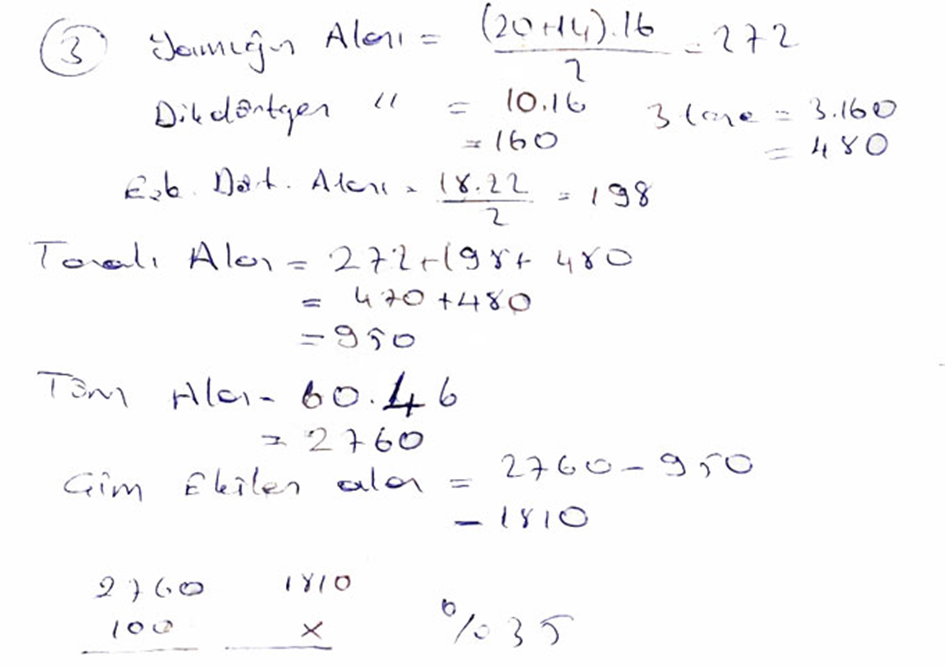 3 Yamuğun Alanı = (20+14).16 / 2 = 272
Dikdörtgen " = 10.16 3 tane = 3.160
= 160 = 480
Eşk. Dört. Alanı = 18.22 / 2 = 198
Taralı Alan = 272+198+480
= 470+480
= 950
Tüm Alan = 60.46
= 2760
Çim Ekilen alan = 2760-950
= 1810
2760 1810
100 x %35